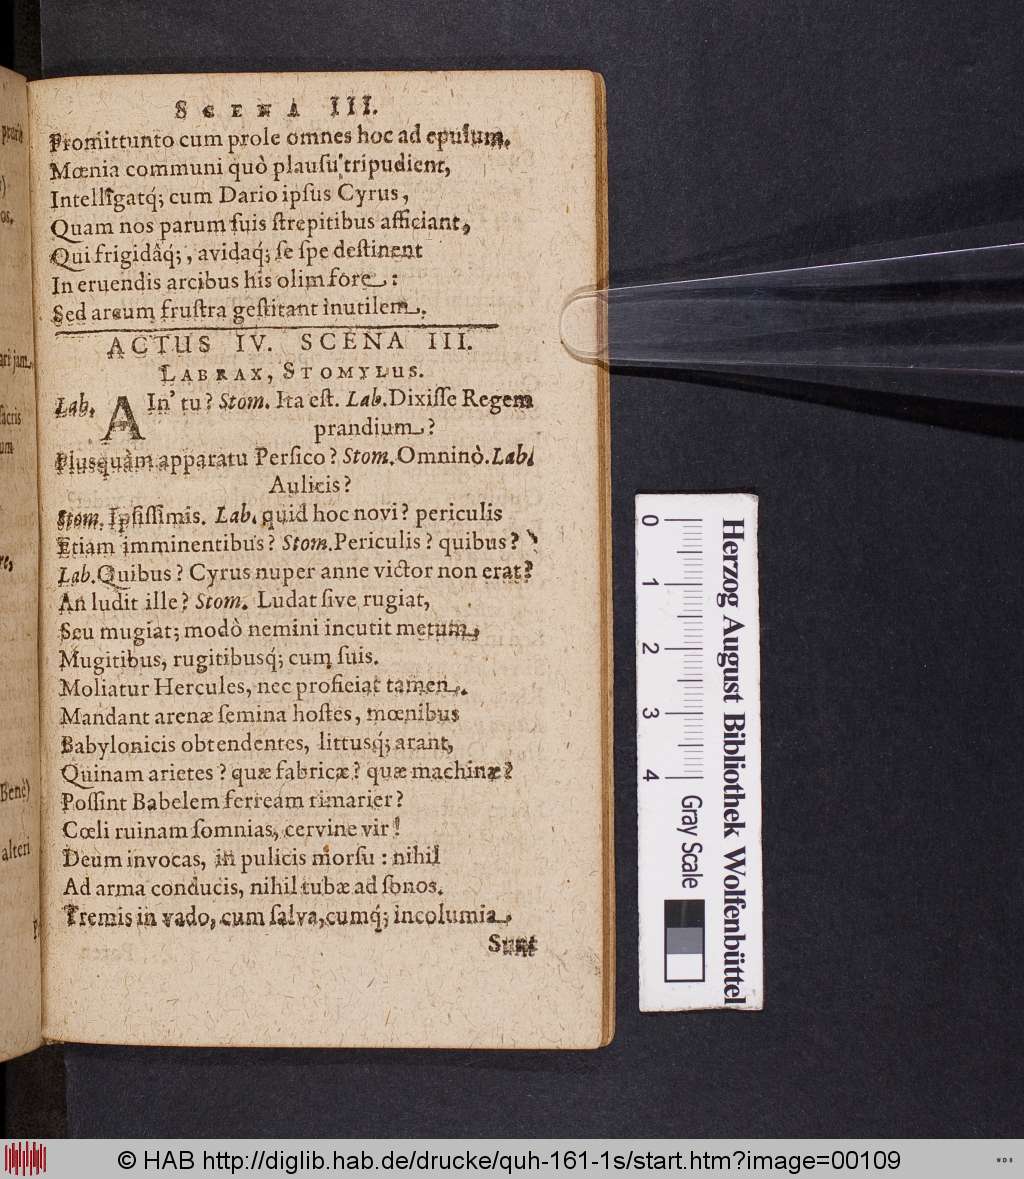 SCENA III.
Promittunto cum prole omnes hoc ad epulum.
Mœnia communi quò plauſu tripudient,
Intelligatq́; cum Dario ipſus Cyrus,
Quam nos parum ſuis ſtrepitibus afficiant,
Qui frigidâq́;, avidaq́; ſe ſpe deſtinent
In eruendis arcibus his olim fore:
Sed arcum fruſtra geſtitant inutilem.
ACTUS IV. SCENA III.
LABRAX, STOMYLUS.
Lab. AIn' tu? Stom. Ita eſt. Lab. Dixiſſe Regem
prandium?
Pluſquàm apparatu Perſico? Stom. Omninò. Lab.
Aulicis?
Stom. Ipſiſſimis. Lab. quid hoc novi? periculis
Etiam imminentibus? Stom. Periculis? quibus?
Lab. Quibus? Cyrus nuper anne victor non erat?
An ludit ille? Stom. Ludat ſive rugiat,
Seu mugiat; modò nemini incutit metum,
Mugitibus, rugitibusq́; cum ſuis.
Moliatur Hercules, nec proficiat tamen.
Mandant arenæ ſemina hoſtes, mœnibus
Babylonicis obtendentes, littusq́; arant,
Quinam arietes? quæ fabricæ? quæ machinæ?
Poſſint Babelem ferream rimarier?
Cœli ruinam ſomnias, cervine vir!
Deum invocas, in pulicis morſu: nihil
Ad arma conducis, nihil tubæ ad ſonos.
Tremis in vado, cum ſalva, cumq́; incolumia
Sunt
prarie
ari jam
ſactis
um
Bene)
alteri
0 1 2 3 4 Gray Scale
Herzog August Bibliothek Wolfenbüttel
© HAB http://diglib.hab.de/drucke/quh-161-1s/start.htm?image=00109